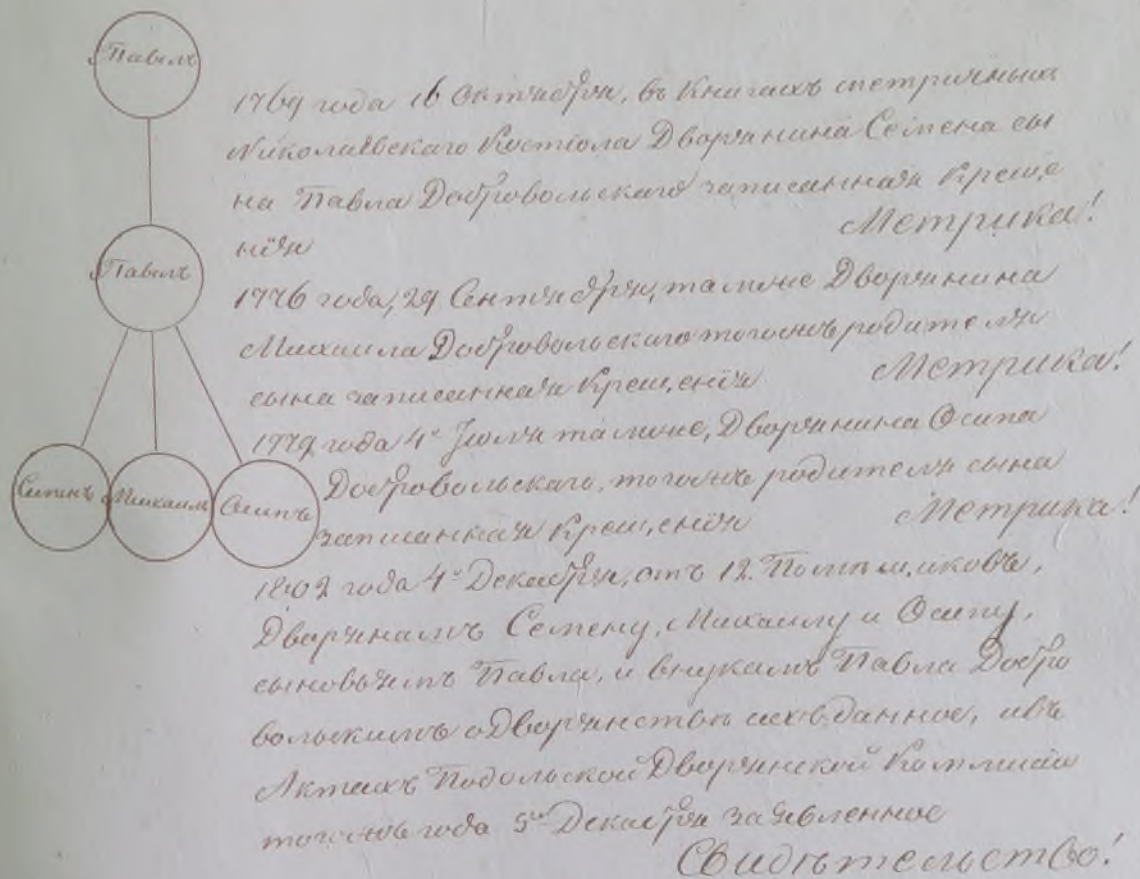 Павелъ
1769 года 16 Октября, въ Книгахъ метричныхъ
Николаевскаго Костіола Дворянина Семена сы
на Павла Добровольскаго записанная Креще
нія
Метрика!
Павелъ
1776 года, 29 Сентября, таможе Дворянина
Михаила Добровольскаго тогожъ родителя
сына записанная Крещенія Метрика!
1779 года 4º Іюля таможе, Дворянина Осипа
Добровольскаго, тогожъ родителя сына
записанная Крещенія Метрика!
Семенъ Михаилъ Осипъ
1802 года 4º Декабря, отъ 12. Помѣщиковъ,
Дворянамъ Семену, Михаилу и Осипу,
сыновьямъ Павла, и внукамъ Павла Добро
вольскимъ о Дворянствѣ ихъ данное, и въ
Актахъ Подольской Дворянской Коммисіи
тогожъ года 5го Декабря заявленное
Свидѣтельство!